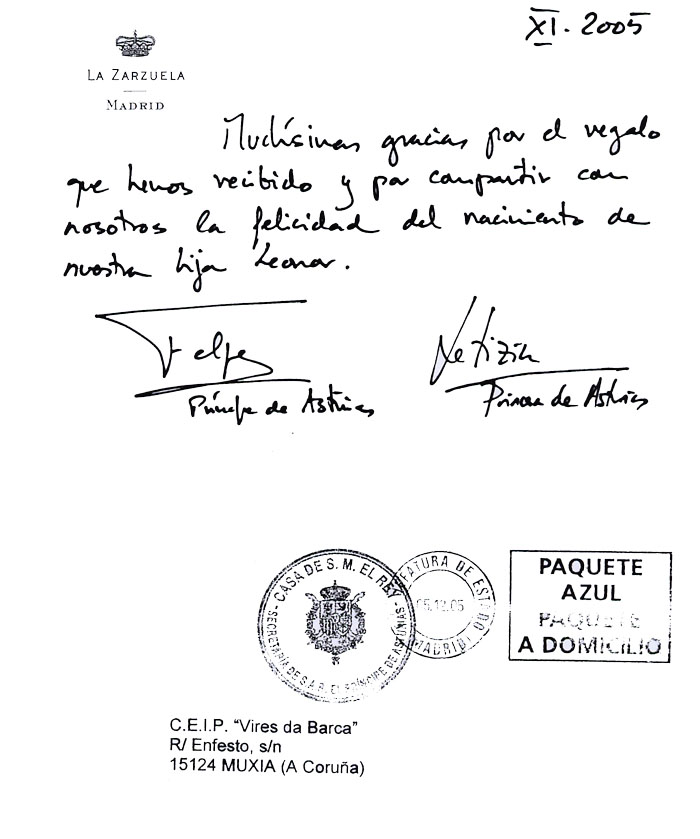 XI. 2005
LA ZARZUELA
MADRID
Muchísimas gracias por el regalo
que hemos recibido y por compartir con
nosotros la felicidad del nacimiento de
nuestra hija Leonor.
Felipe
Letizia
Príncipe de Asturias
Princesa de Asturias
CASA DE S. M. EL REY
SECRETARIA DE S.A.R. EL PRÍNCIPE DE ASTURIAS
JEFATURA DE ESTADO
05.12.05
MADRID
PAQUETE
AZUL
PAQUETE
A DOMICILIO
C.E.I.P. “Vires da Barca”
R/ Enfesto, s/n
15124 MUXIA (A Coruña)